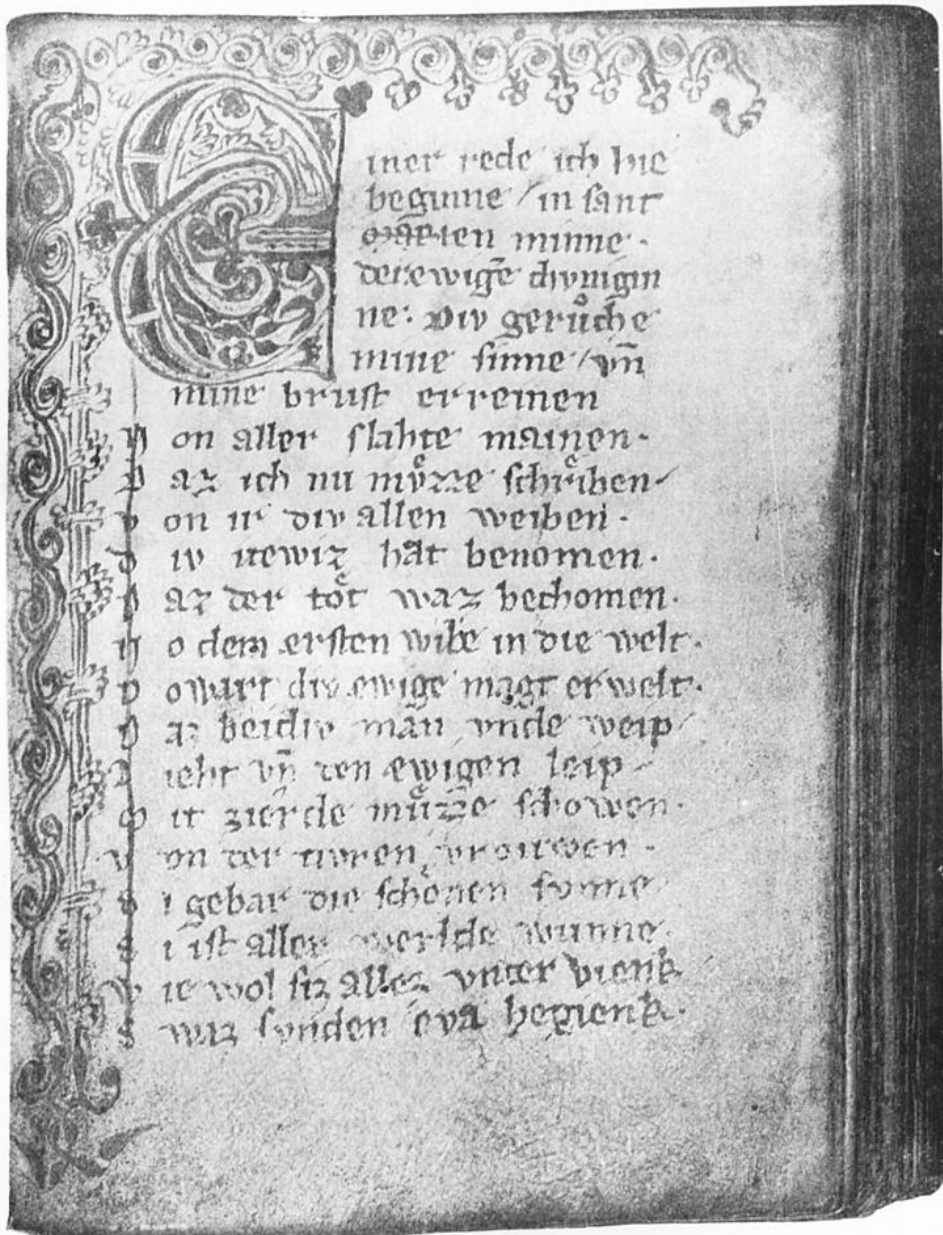 Einer rede ich hie
beginne / in sant
marien minne .
der ewigē chvnigin
ne . Div gerůche
mine sinne / vn̄
mine brust erreinen
Von aller slahte mainen .
Daz ich nu mvͦzze schriben
von ir div allen weiben .
Div itewiz hat benomen .
Daz der tot waz bechomen .
Vō dem ersten wibe in die welt .
Do wart div ewige magt erwelt .
Daz beidiv man vnde weip
Lieht vn̄ den ewigen leip
Mit zierde mvͤzze schowen .
Von der tivren vrouwen .
Si gebar die schonen svnne
Si ist aller werlde wunne .
Wie wol siz allez vnter vienk
Swaz svnden eva begienk .